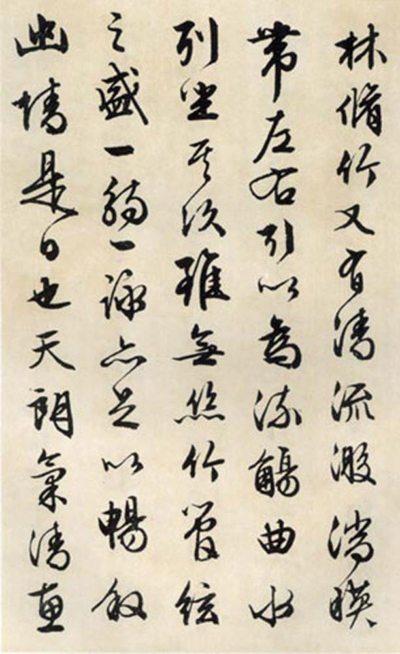 林脩竹又有清流激湍暎
帶左右引以為流觴曲水
列坐其次雖無絲竹管絃
之盛一觴一詠亦足以暢叙
幽情是日也天朗氣清惠